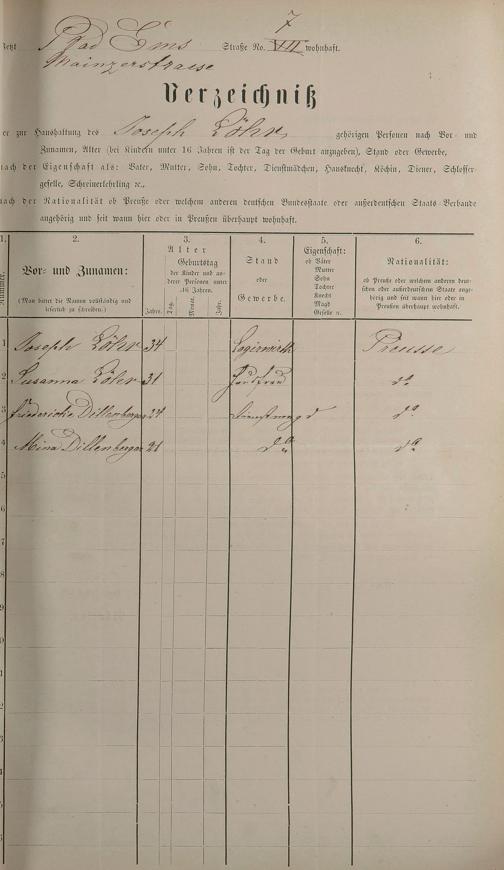 Jetzt Bad Ems Straße No. 7 VII wohnhaft.
Mainzerstrasse
Verzeichniß
er zur Haushaltung des Joseph Löhr gehörigen Personen nach Vor- und
Zunamen, Alter (bei Kindern unter 16 Jahren ist der Tag der Geburt anzugeben), Stand oder Gewerbe,
nach der Eigenschaft als: Vater, Mutter, Sohn, Tochter, Dienstmädchen, Hausknecht, Köchin, Diener, Schlosser
geselle, Schreinerlehrling ꝛc.,
nach der Nationalität ob Preuße oder welchem anderen deutschen Bundesstaate oder außerdeutschen Staats-Verbande
angehörig und seit wann hier oder in Preußen überhaupt wohnhaft.
1. 2. 3. 4. 5. 6.
Nummer.
Vor- und Zunamen:
(Man bittet die Namen vollständig und leserlich zu schreiben.)
Alter
Geburtstag
der Kinder und anderer Personen unter 16 Jahren.
Jahre. Tag. Monat. Jahr.
Stand
oder
Gewerbe.
Eigenschaft:
ob Vater
Mutter
Sohn
Tochter
Knecht
Magd
Geselle ꝛc.
Nationalität:
ob Preuße oder welchem anderen deutschen oder außerdeutschen Staate angehörig und seit wann hier oder in Preußen überhaupt wohnhaft.
1 Joseph Löhr 34 Logirwirth Preusse
2 Susanna Löhr 31 Hausfrau do
3 Friedericke Dillenberger 24 Dienstmagd do
4 Mina Dillenberger 21 do do
5
6
7
8
9
0
1
2
3
4
5
6